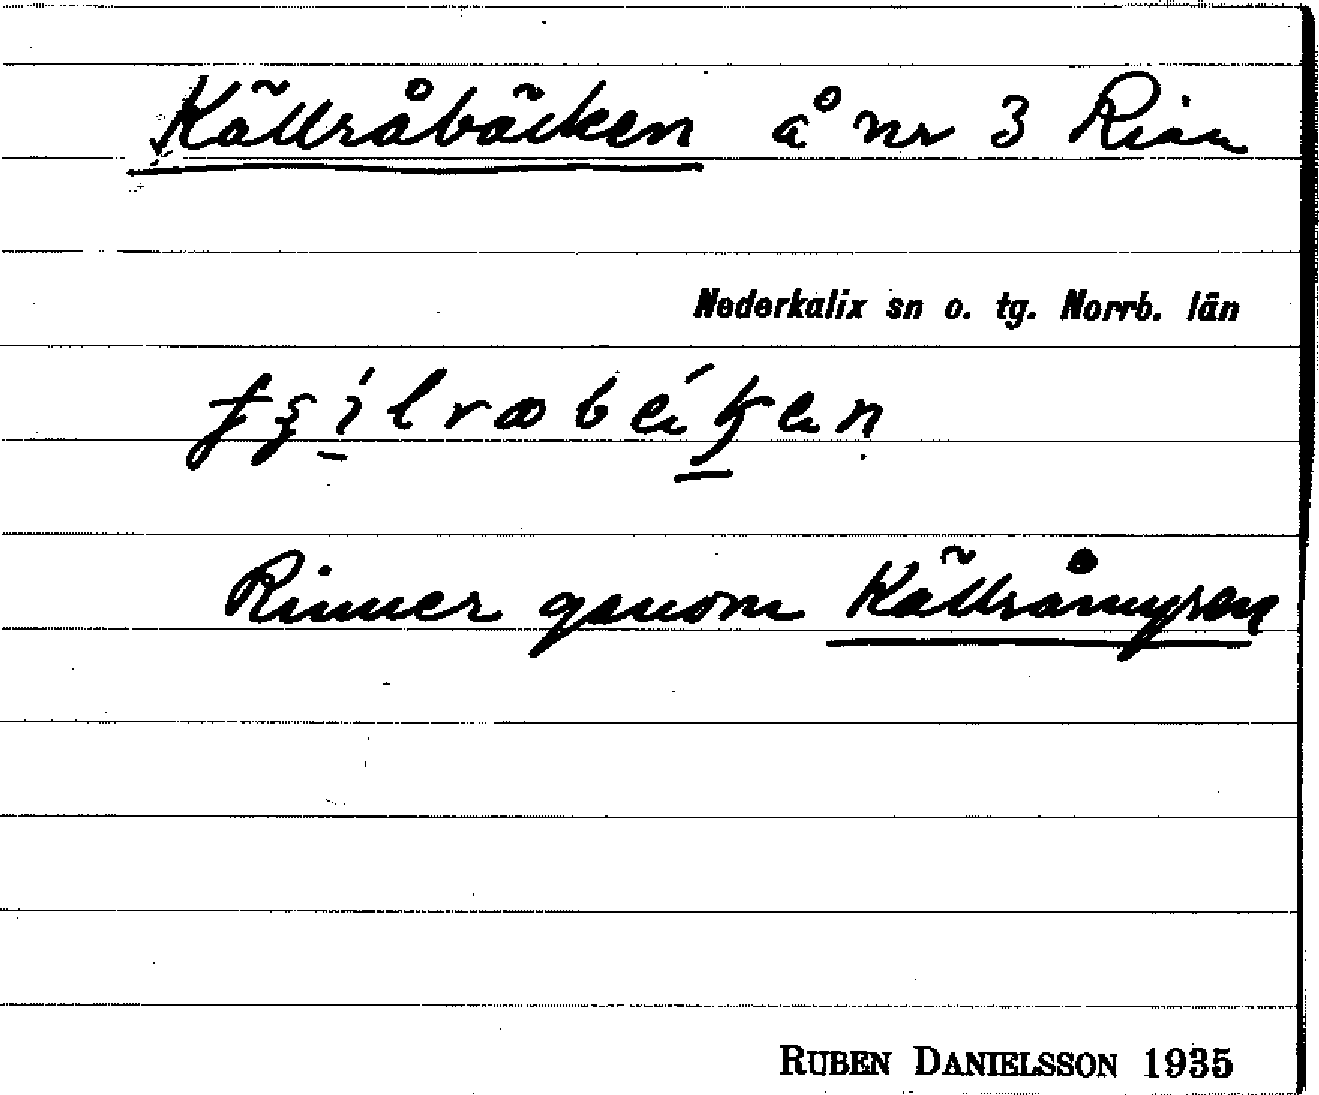 Källråbäcken å nr 3 Rian
Nederkalix sn o. tg. Norrb. län
Rinner genom Källråmyran
RUBEN DANIELSSON 1935